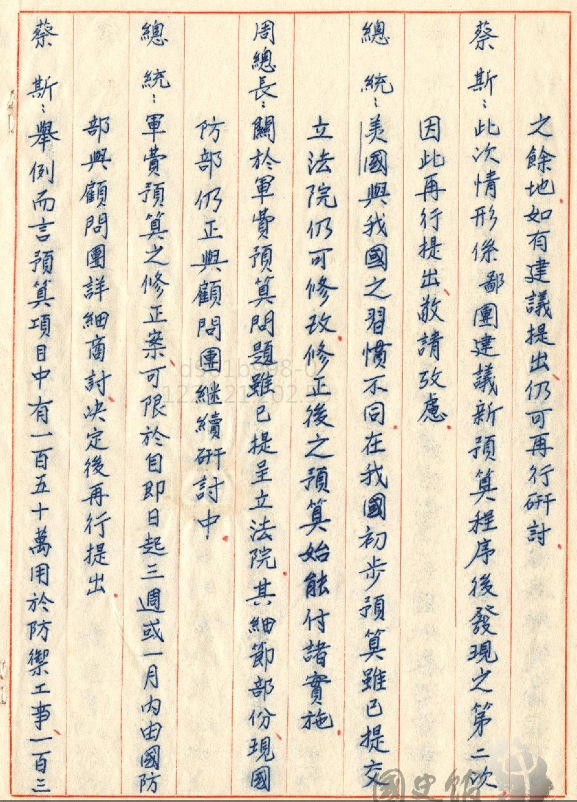 之餘地如有建議提出仍可再行研討
蔡　斯：此次情形係鄙團建議新預算程序後發現之第二次
因此再行提出敬請攷慮
總　統：美國與我國之習慣不同在我國初步預算雖已提交
立法院仍可修改修正後之預算始能付諸實施
周總長：關於軍費預算問題雖已提呈立法院其細節部份現國
防部仍正與顧問團繼續研討中
總　統：軍費預算之修正案可限於自即日起三週或一月內由國防
部與顧問團詳細商討决定後再行提出
蔡　斯：舉例而言預算項目中有一百五十萬用於防禦工事一百三
國史館